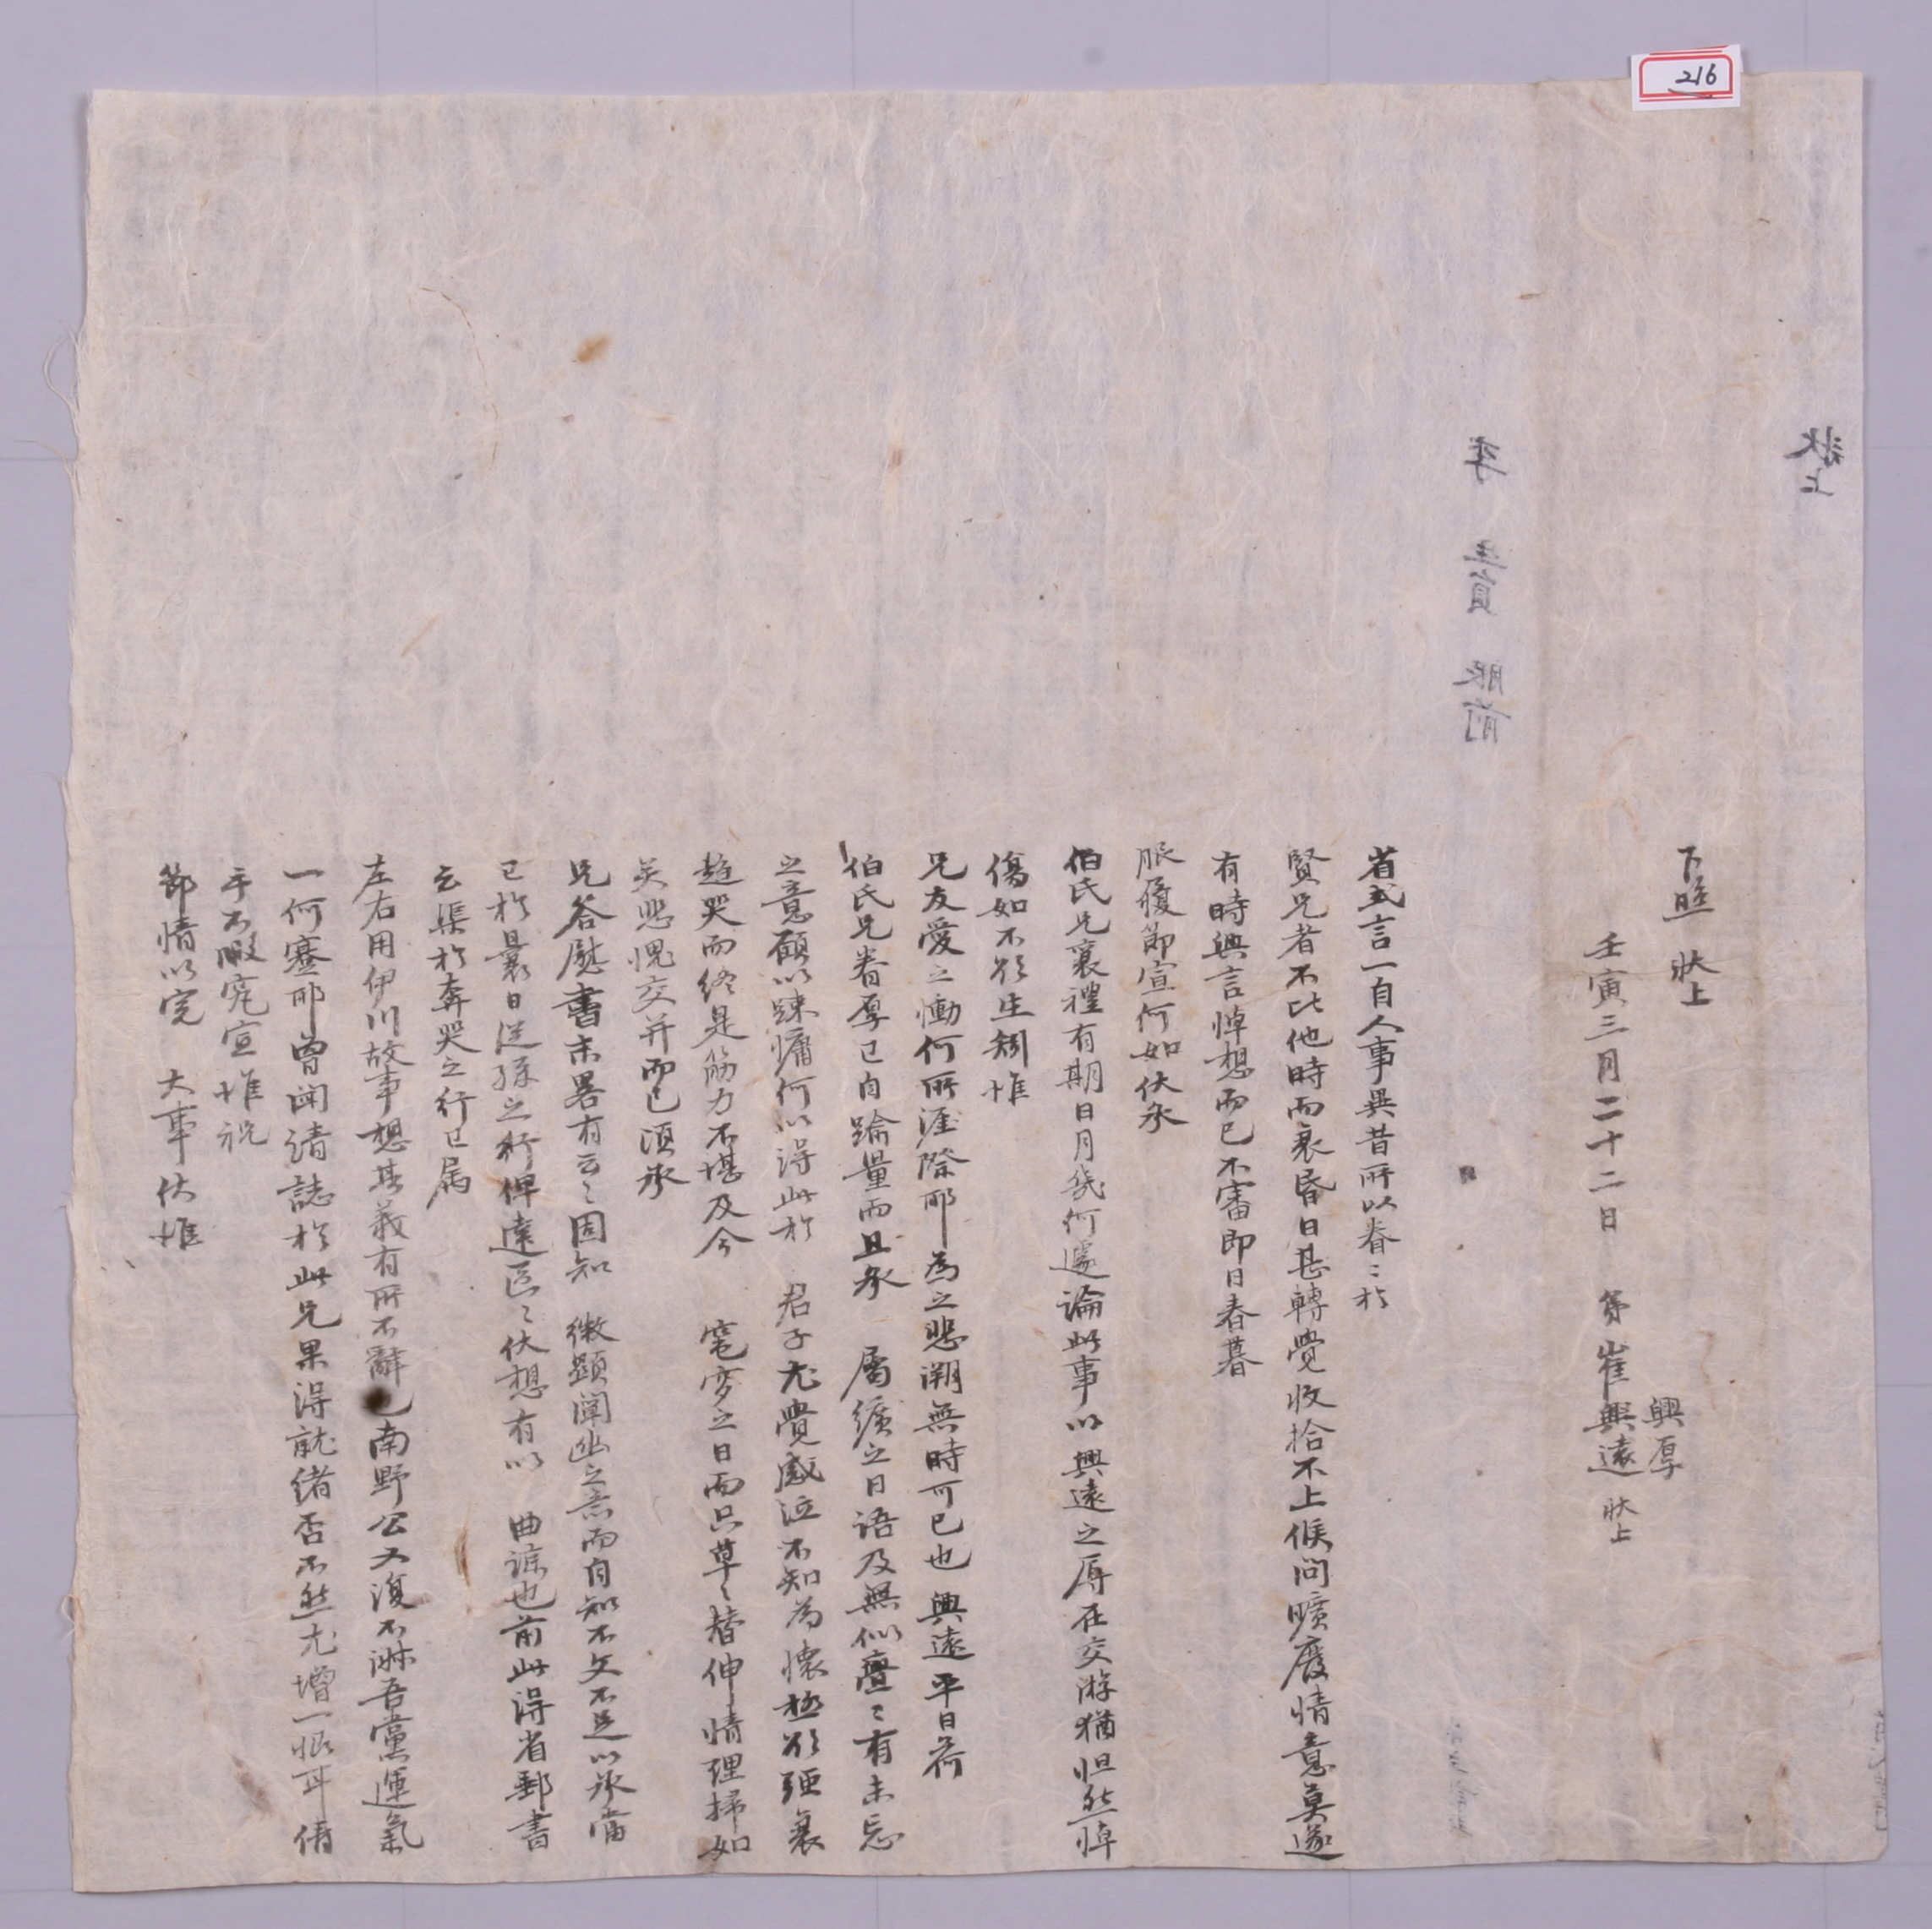 216
省式言一自人事異昔所以眷〻於
賢兄者不比他時而衰昏日甚轉覺收拾不上候問曠廢情意莫遂
有時興言悼想而已不審即日春暮
服履節宣何如伏承
伯氏兄襄禮有期日月幾何遽論此事以興遠之辱在交游猶怛然悼
傷如不欲生矧惟
兄友愛之慟何所涯際耶爲之悲溯無時可已也興遠平日荷
伯氏兄眷厚已自踰量而且承 屬纊之日語及無似亹〻有未忘
之意顧以疎慵何以得此於 君子尤覺感泣不知爲懷極欲强衰
趨哭而終是筋力不堪及今 窀穸之日而只草〻替伸情理掃如
矣悲愧交幷而已須承
兄答慰書末畧有云〻固知 微顯闡幽之意而自知不文不足以承當
已於曩日從孫之行俾達區〻伏想有以 曲諒也前此得省郵書
云渠於奔哭之行已屬
左右用伊川故事想其義有所不辭已南野公又復不淑吾黨運氣
一何蹇耶曾聞請誌於此兄果得就緒否不然尤增一恨耳倩
手不暇究宣惟祝
節情以完 大事伏惟
下照 狀上
壬寅三月二十二日 弟崔興遠 狀上
興厚
李 生員 服前
狀上